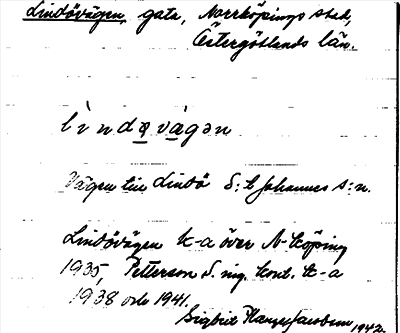 Lindövägen, gata, Norrköpings stad,
Östergötlands län.
lìndøvàgən
Vägen till Lindö S:t Johannes s:n.
Lindövägen k-a över N-köping
1935, Petterson S. ing. kont. k-a
1938 och 1941.
Sigbrit Jacobson 1942.